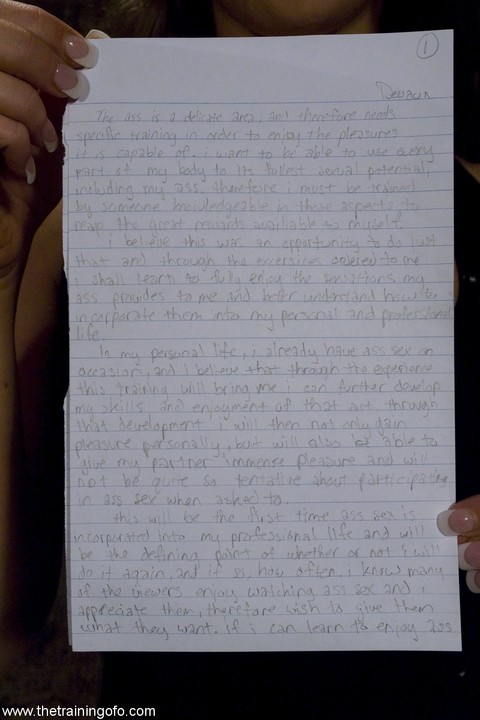 1
Devaun
The ass is a delicate area, and therefore needs
specific training in order to enjoy the pleasures
it is capable of. i want to be able to use every
part of my body to its fullest sexual potential,
including my ass therefore i must be trained
by someone knowledgeable in those aspects to
reap the great rewards available to myself.
i believe this was an opportunity to do just
that and through the excersices ordered to me
i shall learn to fully enjoy the sensations my
ass provides to me and better understand how to
incorparate them into my personal and professional
life.
In my personal life, i already have ass sex on
occasion, and I believe that through the experience
this training will bring me i can further develop
my skills and enjoyment of that act through
that development i will then not only gain
pleasure personally, but will also be able to
give my partner immense pleasure and will
not be quite so tentative about participating
in ass sex when asked to.
this will be the first time ass sex is
incorporated into my professional life and will
be the defining point of whether or not i will
do it again, and if so, how often, i know many
of the viewers enjoy watching ass sex and i
appreciate them, therefore wish to give them
what they want. if i can learn to enjoy ass
www.thetrainingofo.com